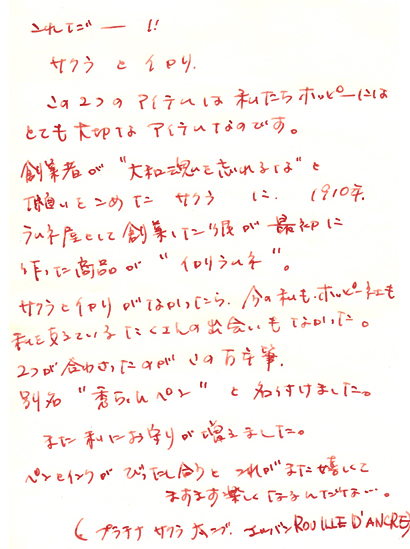 これだー!!
サクラとイカリ.
この2つのアイテムは私たちホッピーには
とても大切なアイテムなのです。
創業者が"大和魂を忘れるな"と
願いをこめたサクラに、1910年、
ラムネ屋として創業した祖父が最初に
作った商品が"イカリラムネ"。
サクラとイカリがなかったら、今の私も、ホッピー社も
私を支えているたくさんの出会いもなかった。
2つが合わさったのがこの万年筆.
別名"秀ちゃんペン"と名付けました。
また私にお守りが増えました。
ペンとインクがぴったし合うとこれがまた嬉しくて
ますます楽しくなるんだな…。
(プラチナ サクラ 太ニブ. エルバン ROUILLE D'ANCRE)